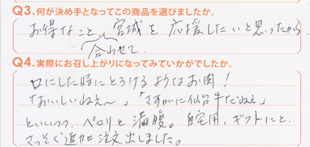 Q3.何が決め手となってこの商品を選びましたか。
お得なこと 宮城を応援したいと思ったから
合わせて
Q4.実際にお召し上がりになってみていかがでしたか。
口にした時にとろけるようなお肉!
「おいしいねぇ〜」「さすがに仙台牛だねぇ」
といいつつ、ペロリと満腹。自宅用、ギフトにと、
さっそく追加注文出しました。